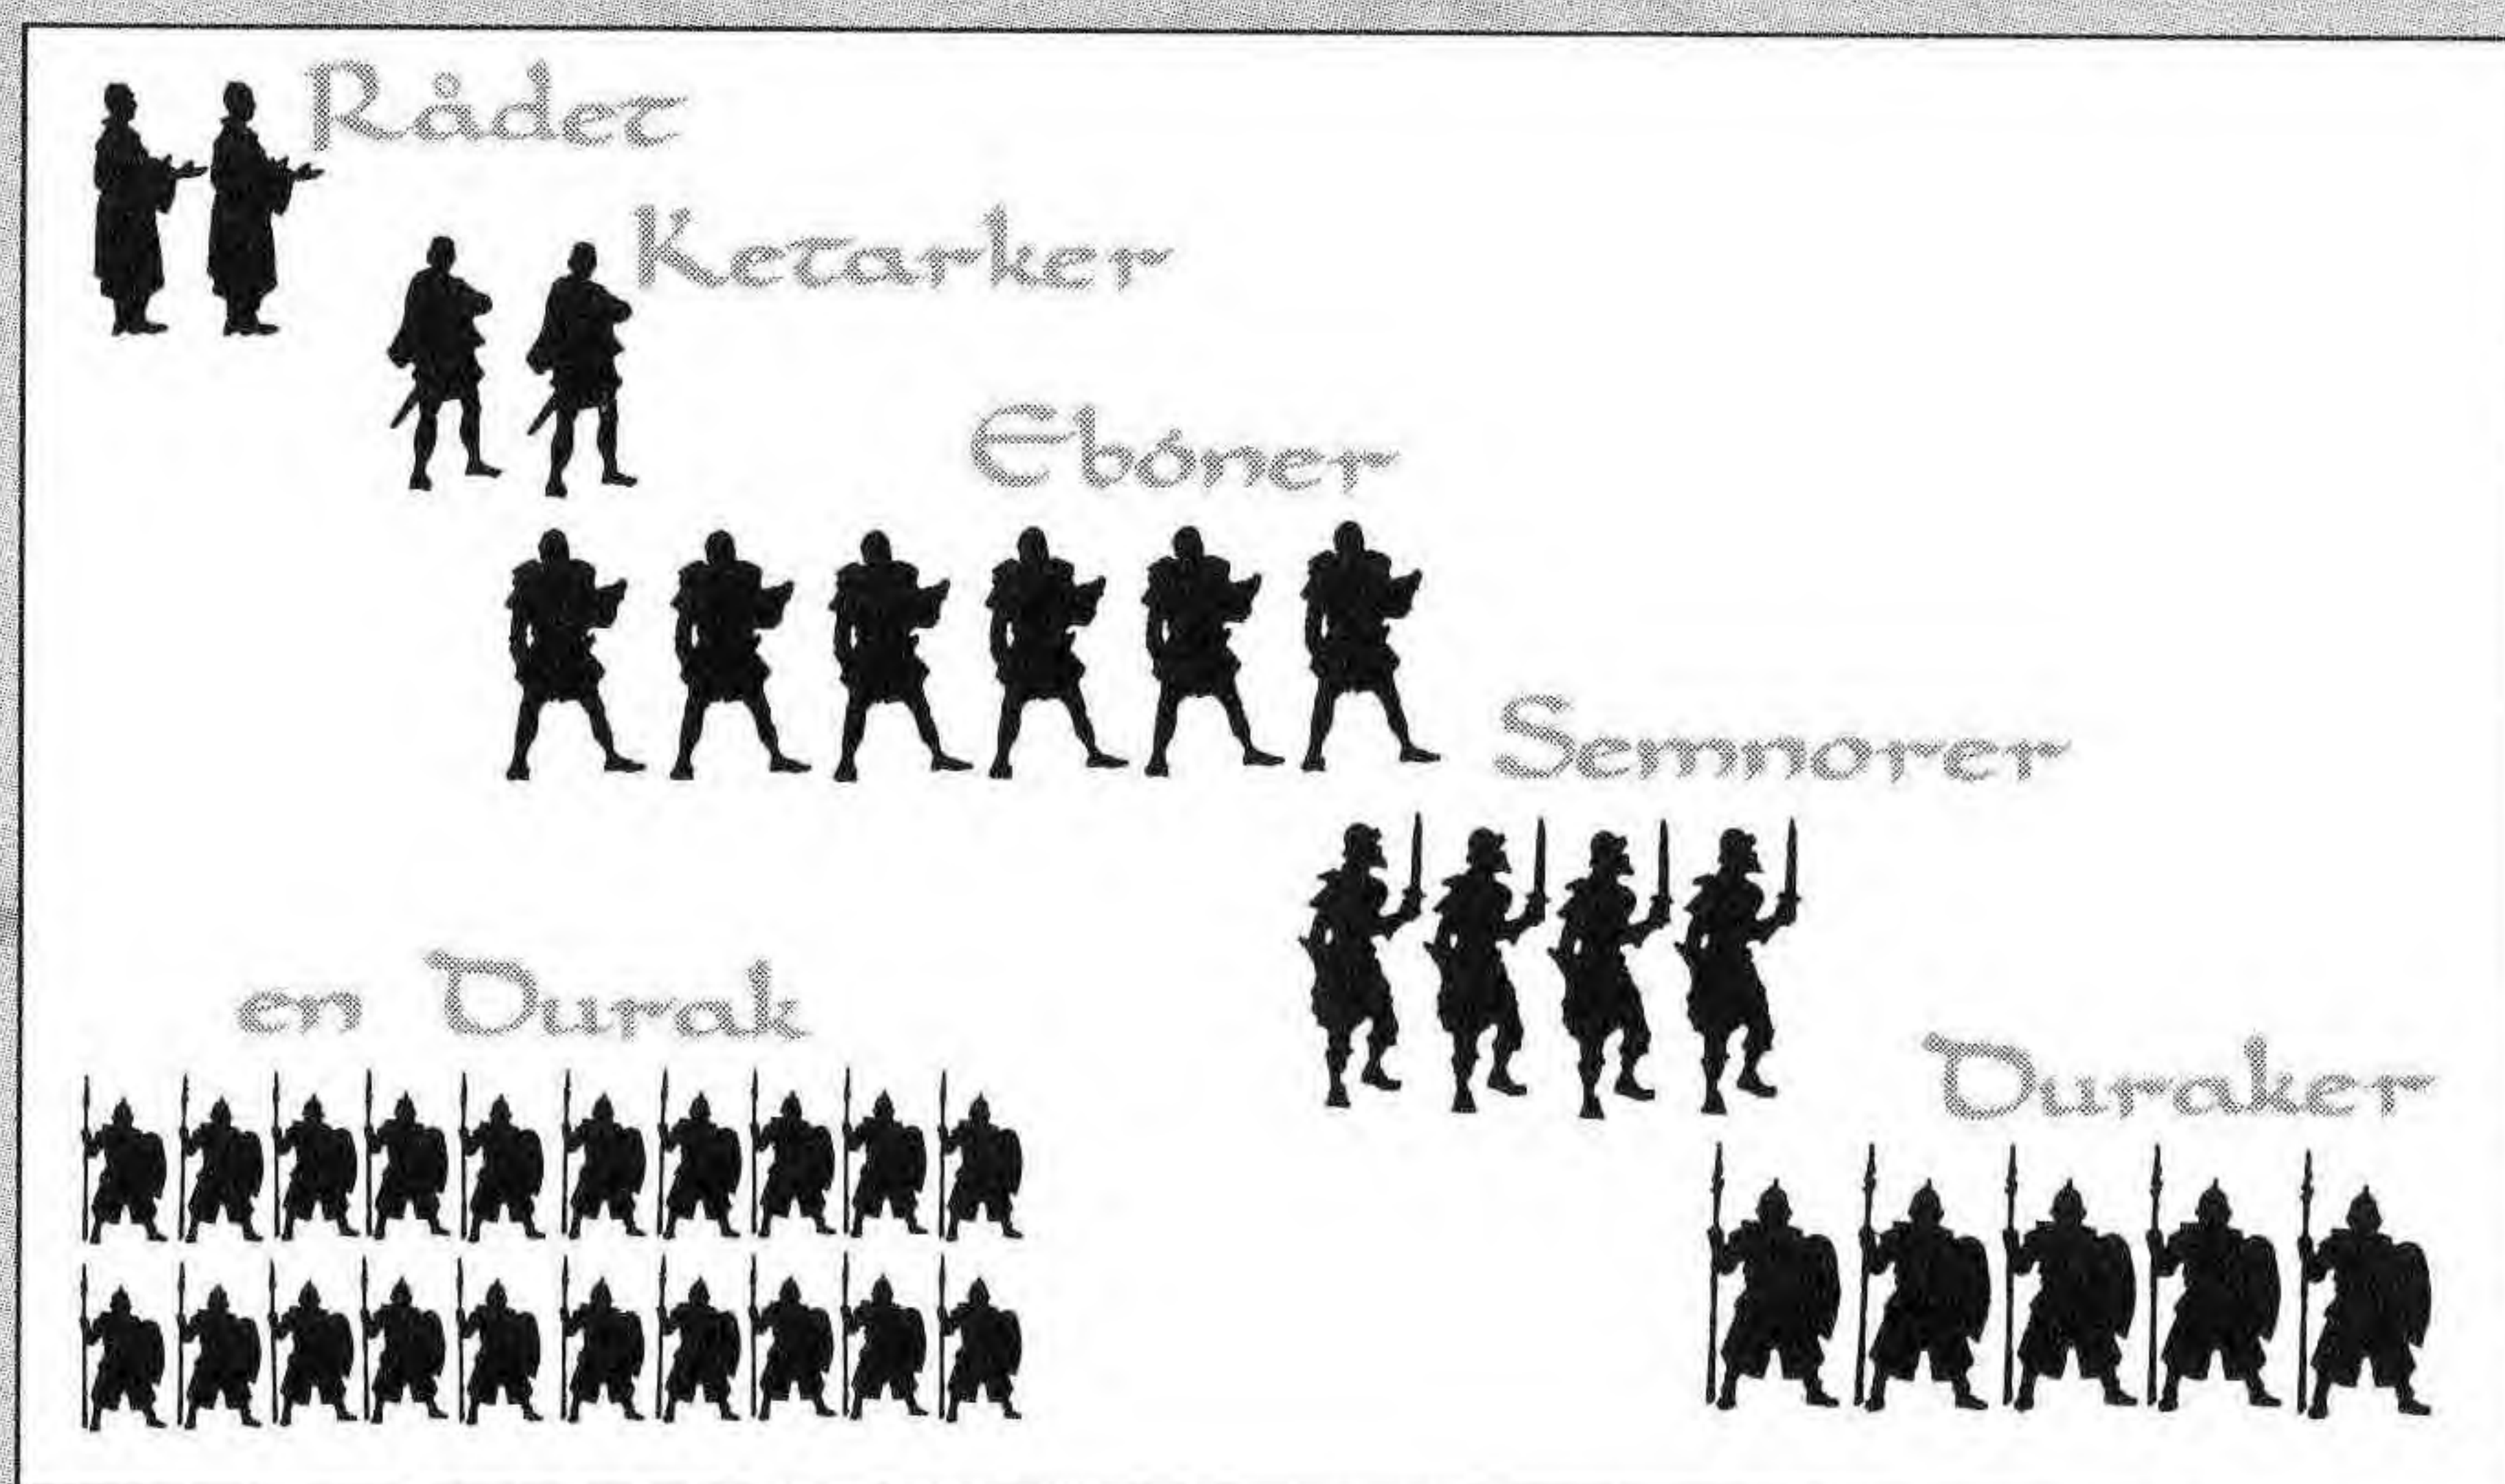 Rådet
Ketarker
Ebóner
Semnorer
en Durak
Duraker